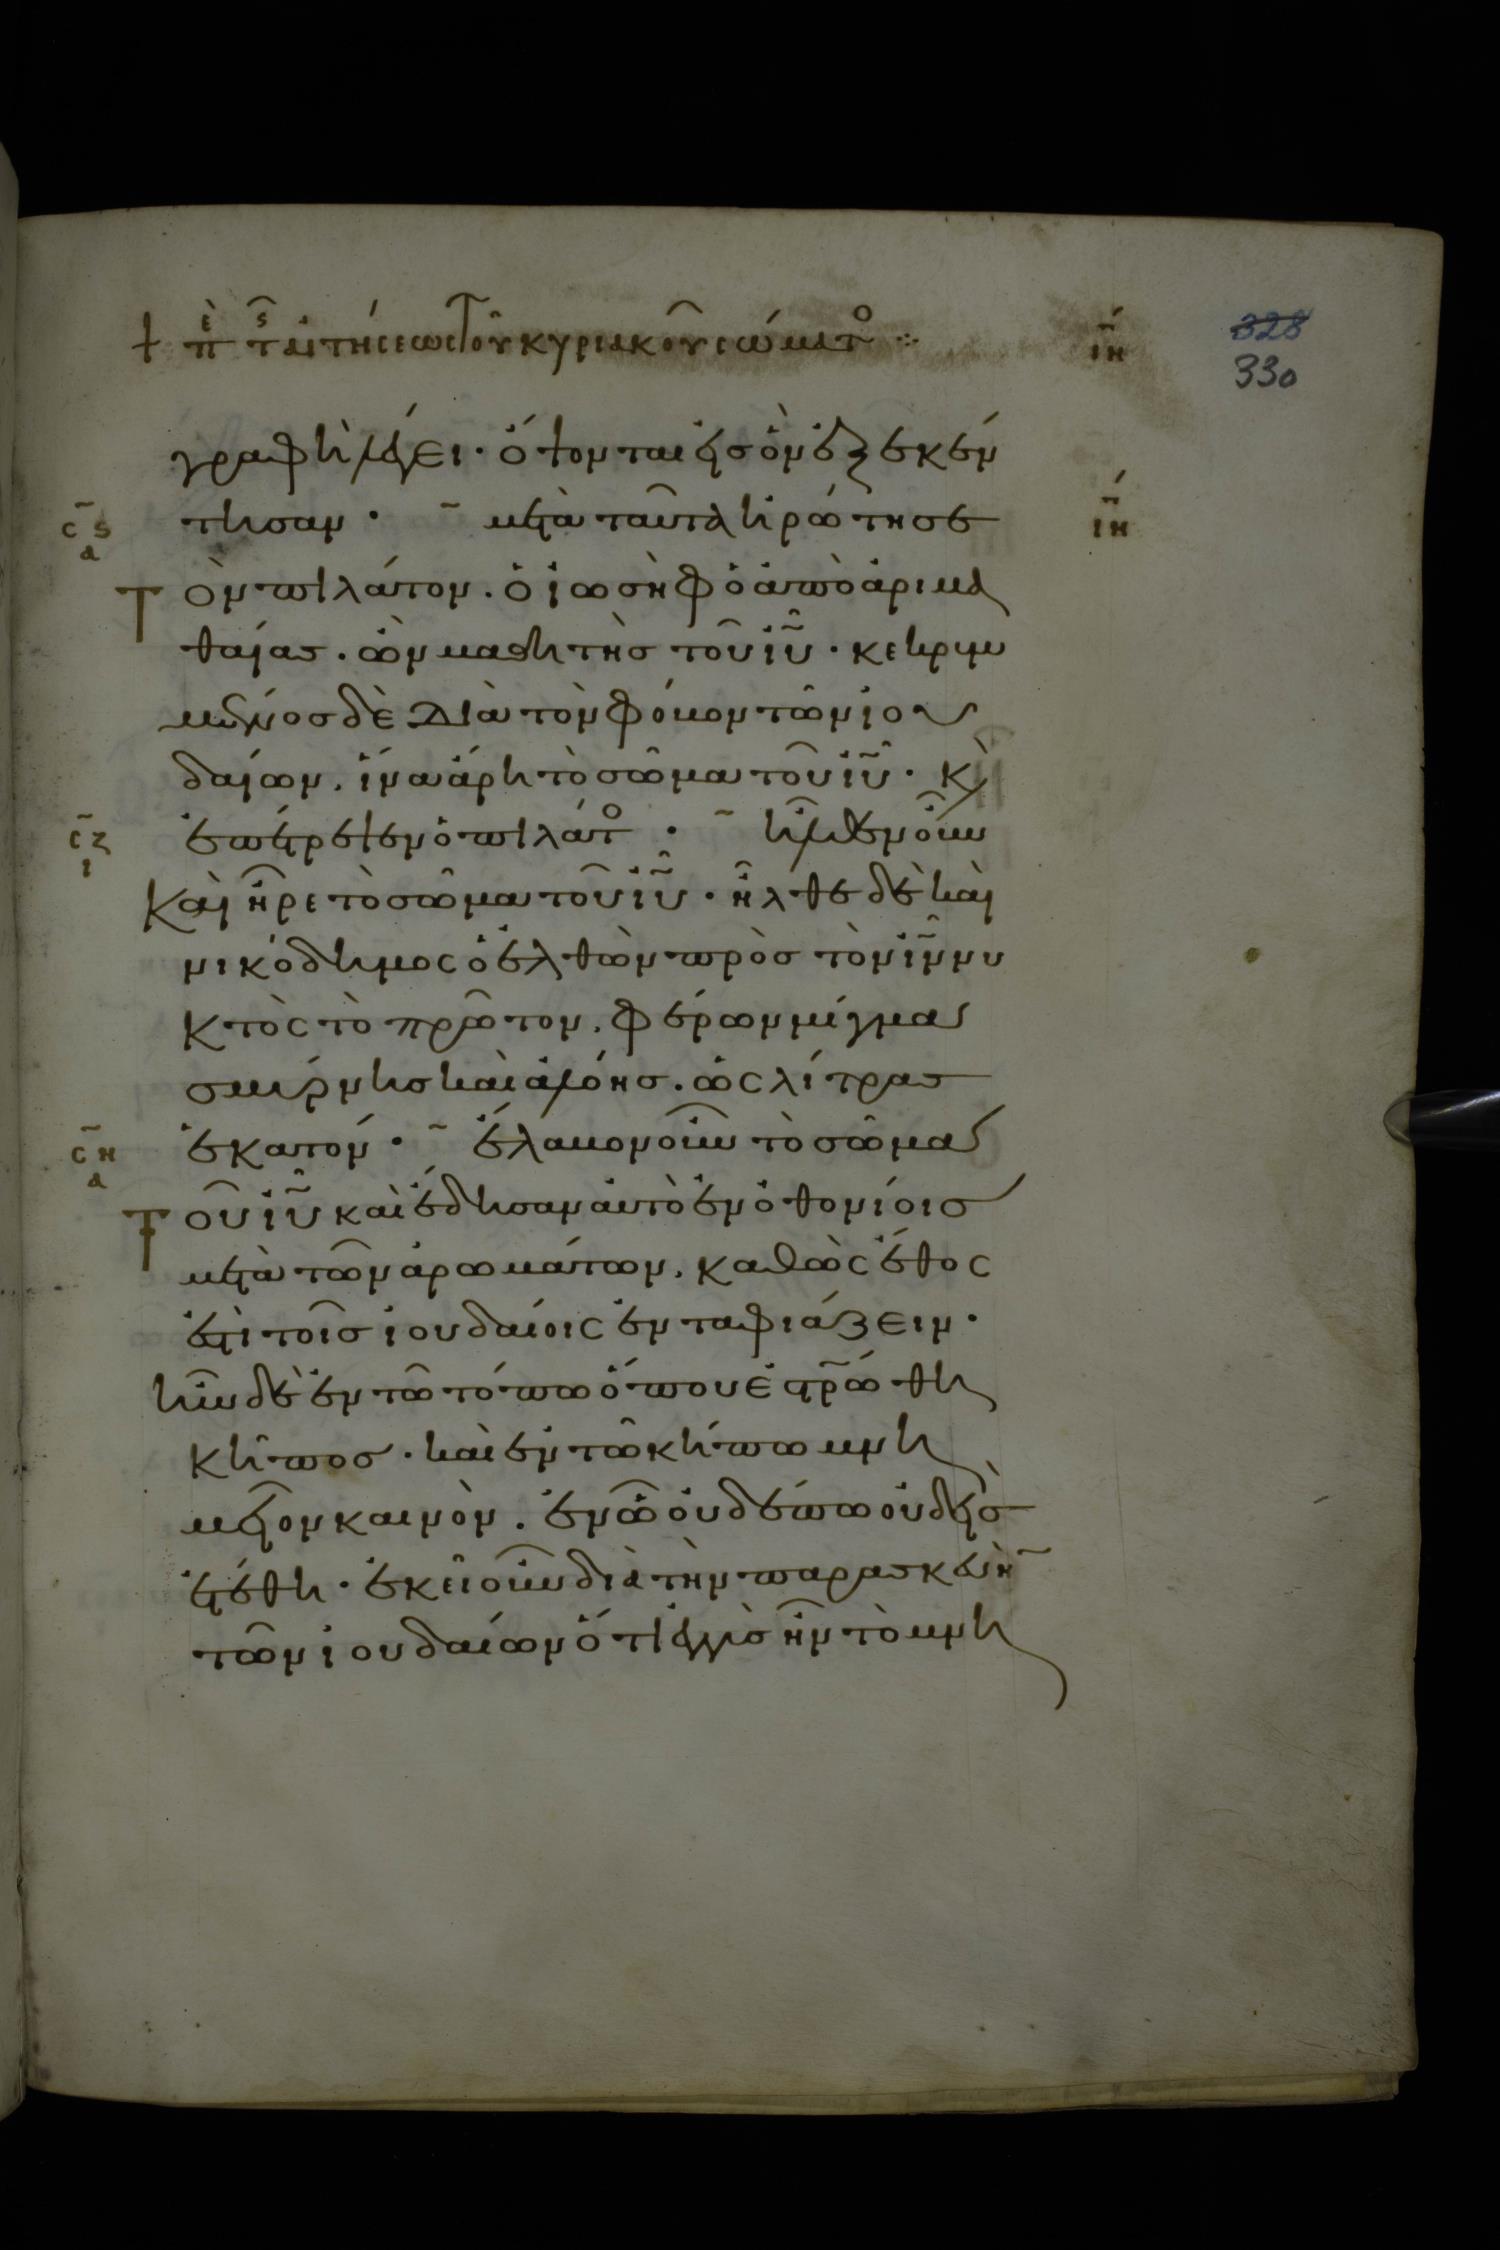 + πὲ τῆς αἰτήσεως τοῦ κυριακοῦ σώματο ιη
328
330
γραφὴ λέγει· ὄψονται εἰς ὃν ἐξεκέν
τησαν· μετὰ ταῦτα ἠρώτησε ιη
ςς α
Τὸν πιλάτον. ὁ ἰωσὴφ ὁ ἀπὸ ἀριμα
θαίας. ὢν μαθητὴς τοῦ ἰῦ. κεκρυμ
μένος δὲ διὰ τὸν φόβον τῶν ἰου
δαίων, ἵνα ἄρη τὸ σῶμα τοῦ ἰῦ. κὶ
ςζ ι
ἐπέτρεψεν ὁ πιλάτο· ἦλθεν οὖν
καὶ ἦρε τὸ σῶμα τοῦ ἰῦ. ἦλθε δὲ καὶ
νικόδημος ὁ ἐλθὼν πρὸς τὸν ἰν νυ
κτὸς τὸ πρῶτον, φέρων μίγμα
σμύρνης καὶ ἀλόης. ὡς λίτρας
ςη α
ἑκατόν· ἔλαβον οὖν τὸ σῶμα
Τοῦ ἰῦ καὶ ἔδησαν αὐτὸ ἐν ὀθονίοις
μετὰ τῶν ἀρωμάτων, καθὼς ἔθος
ἐστὶ τοῖς ἰουδαίοις ἐνταφιάζειν·
ἦν δὲ ἐν τῶ τόπω ὅπου ἐστρώθη
κῆπος· καὶ ἐν τῶ κήπω μνη
μεῖον καινὸν. ἐν ῶ οὐδέπω οὐδεὶς
ἐτέθη· ἐκεῖ οὖν διὰ τὴν παρασκευὴ
τῶν ἰουδαίων ὅτι ἐγγὺς ἦν τὸ μνη